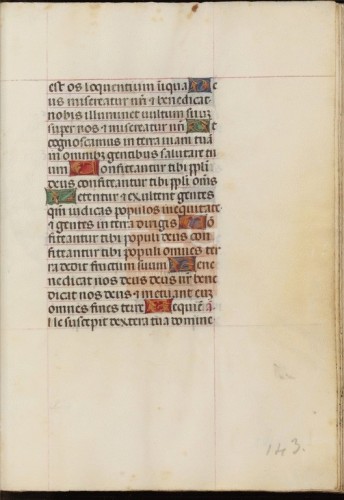 est os loquentium iniqua D e
us misereatur nr̄i & benedicat
nobis illuminet vultum suuȝ
super nos & misereatur nr̄i U t
cognoscamus in terra viam tua
m in omnibȝ gentibus salutare tu
um C onfiteantur tibi pp̄li
deus confiteantur tibi pp̄li om̄s
L etentur & exultent gentes
qm̄ iudicas populos in equitate
& gentes in terra dirigis C ō
fiteantur tibi populi deus con
fiteantur tibi populi omnes ter
ra dedit fructum suum B ene
nedicat nos deus deus nr̄ bene
dicat nos deus & metuant euȝ
omnes fines terre R equiē ā
Me suscepit dextera tua domine
143.